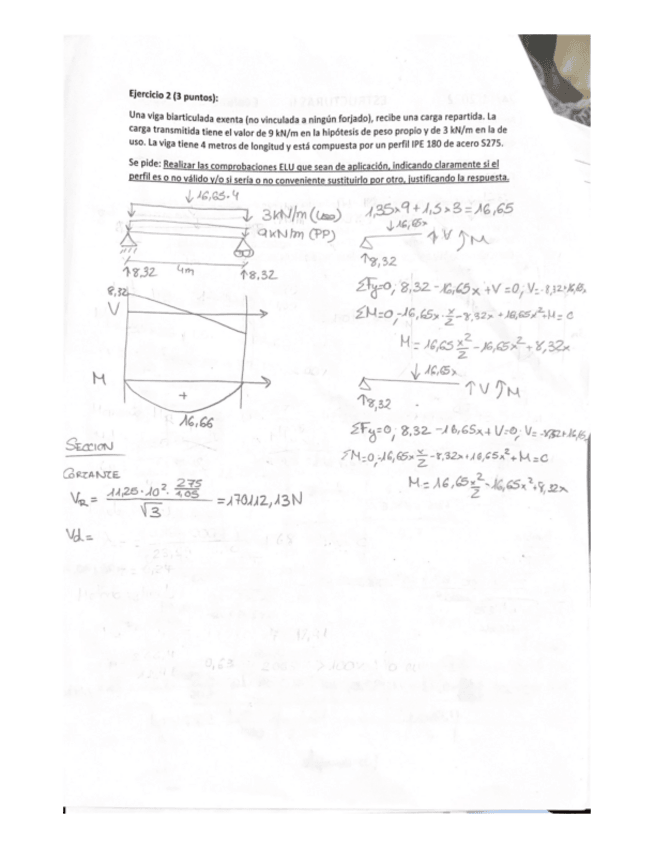 Ejercicio 2 (3 puntos):
Una viga biarticulada exenta (no vinculada a ningún forjado), recibe una carga repartida. La
carga transmitida tiene el valor de 9 kN/m en la hipótesis de peso propio y de 3 kN/m en la de
uso. La viga tiene 4 metros de longitud y está compuesta por un perfil IPE 180 de acero S275.
Se pide: Realizar las comprobaciones ELU que sean de aplicación, indicando claramente si el
perfil es o no válido y/o si sería o no conveniente sustituirlo por otro, justificando la respuesta.
↓16,65·4
3kN/m (USO)
9kN/m (PP)
↑8,32 4m ↑8,32
8,32
V
M
+
16,66
1,35x9 + 1,5x3 = 16,65
↓16,65x
↑V M
↑8,32
ΣFy=0; 8,32 - 16,65x + V = 0;
ΣM=0;
M = 16,65 x²/2 - 16,65x² + 8,32x
↓16,65x
↑V M
↑8,32
ΣFy=0; 8,32 - 16,65x + V=0;
ΣM=0; -16,65x x/2 - 8,32x + 16,65x² + M = 0
M = 16,65 x²/2 - 16,65x² + 8,32x
SECCION
CORTANTE
VR = 11,25·10² · 275/1,05 / √3 = 170112,13N
Vd =